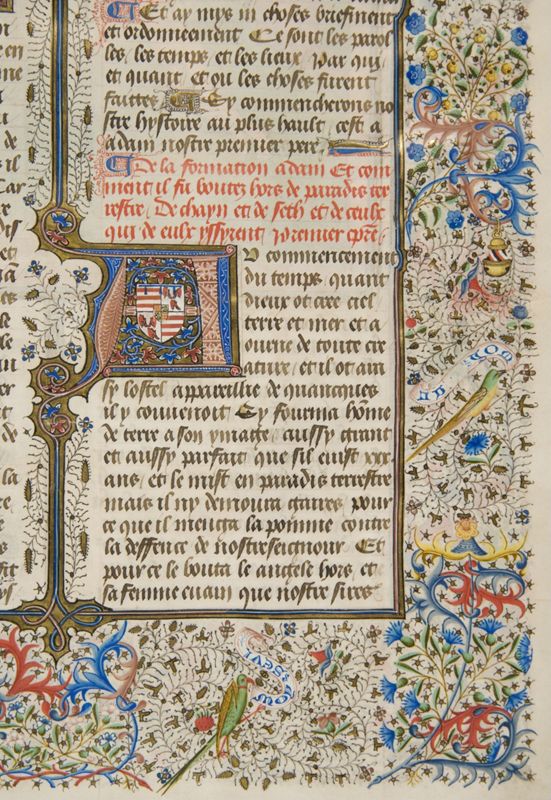 Et ay mys in choses briefment
et ordonneement Ce sont les parol
les, les temps, et les lieux Par qui
et quant et ou les choses furent
faittes Cy commencherons no
stre hystoire au plus hault, cest a
adam nostre premier pere,
De la formation adam Et com
ment il fu boutez hors de paradis ter
restre, De chayn et de seth et de ceulx
qui de eulx yssyrent Premier
AU commencement
du temps, quant
dieux ot cree ciel
terre et mer et a
ourne de toute cre
ature, et il ot ain
sy lostel appareillie de quancques
il y couvenoit Cy fourma home
de terre a son aussy grant
et aussy parfait que sil eust xxx
ans, et le mist en paradis terrestre
mais il ny demoura gaires pour
ce que il menga la pomme contre
la deffence de nostreseignour Et
pour ce le bouta le angele hors, et
sa femme euain que nostre sires